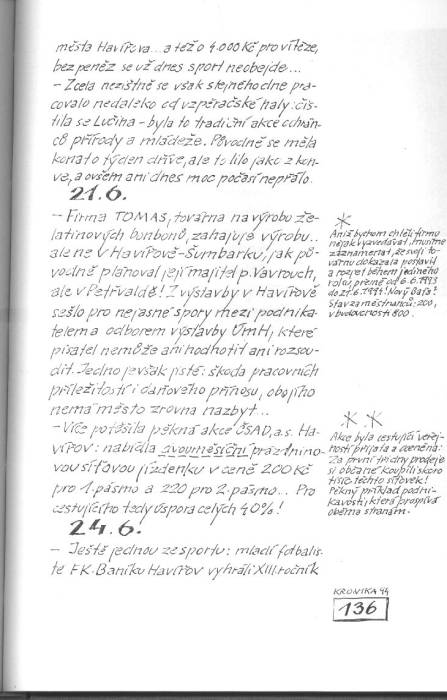 města Havířova... a též o 4.000 Kč pro vítěze,
bez peněz se už dnes sport neobejde...
- Zcela nezištně se však stejného dne pra-
covalo nedaleko od vzpěračské haly: čis-
tila se Lučina - byla to tradiční akce ochrán-
ců přírody a mládeže. Původně se měla
konat o týden dříve, ale to lilo jako z kon-
ve, a ovšem ani dnes moc počasí nepřálo.
21.6.
- Firma TOMAS, továrna na výrobu že-
latinových bonbonů, zahajuje výrobu..
ale ne v Havířově-Šumbarku, jak pů-
vodně plánoval její majitel p. Vavrouch,
ale v Petřvaldě! Z výstavby v Havířově
sešlo pro nejasné spory mezi podnika-
telem a odborem výstavby ÚmH, které
pisatel nemůže ani hodnotit ani rozsou-
dit. Jedno je však jisté: škoda pracovních
příležitostí i daňového přínosu, obojího
nemá město zrovna nazbyt...
- Více potěšila pěkná akce ČSAD, a.s. Ha-
vířov: nabídla dvouměsíční prázdnino-
vou síťovou jízdenku v ceně 200 Kč
pro 1. pásmo a 220 pro 2. pásmo... Pro
cestujícího tedy úspora celých 40%!
24.6.
- Ještě jednou ze sportu: mladí fotbalis-
té FK. Baníku Havířov vyhráli XIII. ročník
*
Aniž bychom chtěli firmu
nějak vyzvedávat, musíme
zaznamenat, že svoji to-
várnu dokázala postavit
a rozjet během jediného
roku, přesně od 6.6.1993
do 21.6.1994! Nový Baťa?
Stav zaměstnanců: 200,
v budoucnosti 800.
* *
Akce byla cestující veřej-
ností přijata a oceněna:
Za první tři dny prodeje
si občané koupili skoro
tisíc těchto síťovek!
Pěkný příklad podni-
kavosti, která prospívá
oběma stranám.
KRONIKA 94
136